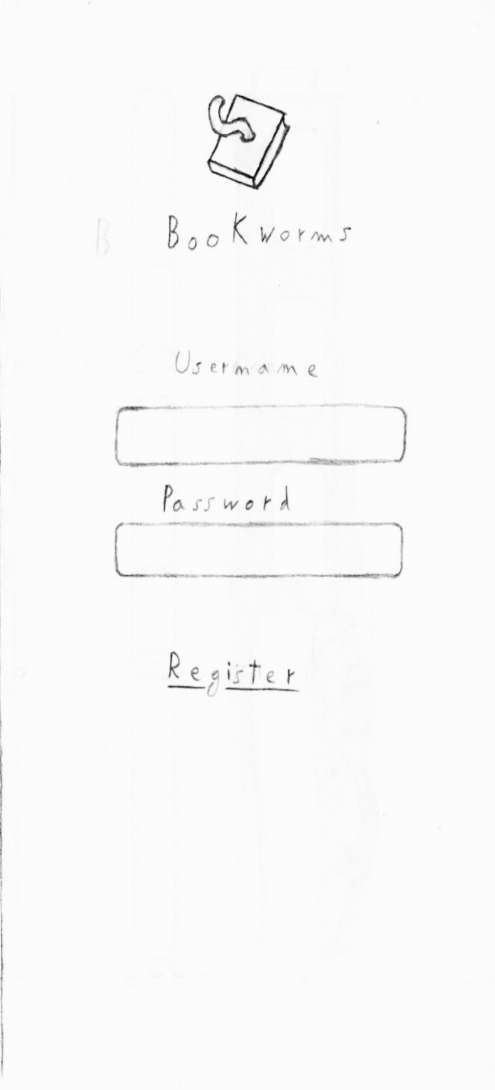 BooKworms
Username
Password
Register